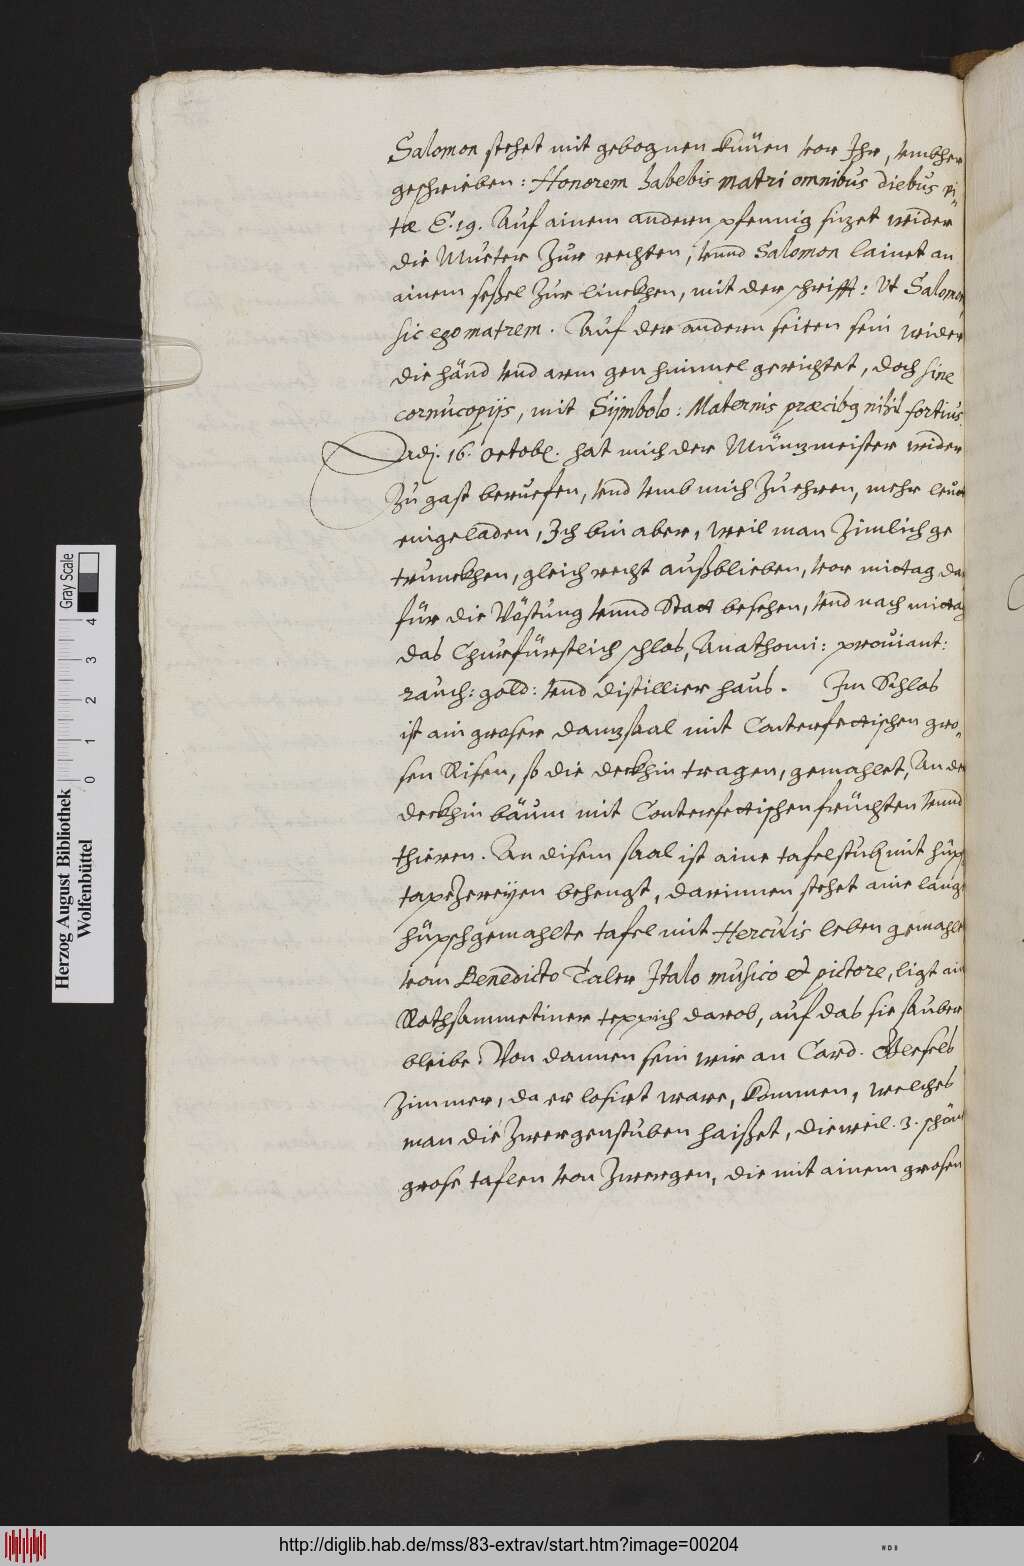 Salomon stehet mit gebognen knüen vor Ihr, vmbher
geschrieben: Honorem habebis matri omnibus diebus vi-
tæ E. 19. Auf ainem andern pfennig sizet wider
die Mutter zur rechten, vnnd Salomon lainet an
ainem seßel zur linckhen, mit der schrifft: Vt Salomon
sic ego matrem. Auf der andern seiten sein wider
die händ vnd arm gen himmel gerichtet, doch sine
cornucopijs, mit Sÿmbolo: Maternis præcibq nihil fortius.
Adj. 16. octob. hat mich der Münzmeister wider
zu gast beruefen, vnd vmb mich zu ehren, mehr leut
eingeladen, Ich bin aber, weil man zimlich ge
trunckhen, gleich recht außblieben, vor mittag da
für die Vöstung vnnd Statt besehen, vnd nach mittag
das Churfürstlich schlos, Anathomi: prouiant:
rauch: gold: vnd distillier haus. Im Schlos
ist ain groser danzsaal mit Conterfettischen gro-
sen Risen, so die deckhin tragen, gemahlet, An der
deckhin bäum mit Conterfettischen früchten vnnd
thieren. An disem saal ist aine tafelstub mit hüpsch
tapezereÿen behengt, darinnen stehet aine lange
hüpschgemahlte tafel mit Herculis leben gemahlt
von Benedicto Taler Italo musico et pictore, ligt ain
Rothsammetiner teppich darob, auf das sie sauber
bleibe. Von dannen sein wir an Card. Glesels
Zimmer, da er losirt ware, kommen, welches
man die zwergenstuben haißet, dieweil. 3. schöne
grose taflen von zwergen, die mit ainem grosen
Herzog August Bibliothek
Wolfenbüttel
Gray Scale
0 1 2 3 4
http://diglib.hab.de/mss/83-extrav/start.htm?image=00204
WDB